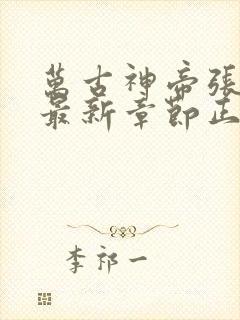 萬古神帝張
最新章節正
李祁一